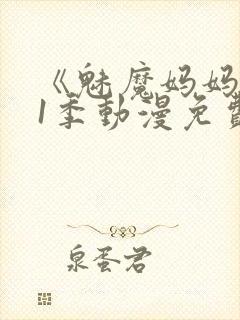 《魅魔妈妈
1季動漫免費
泉蛋君